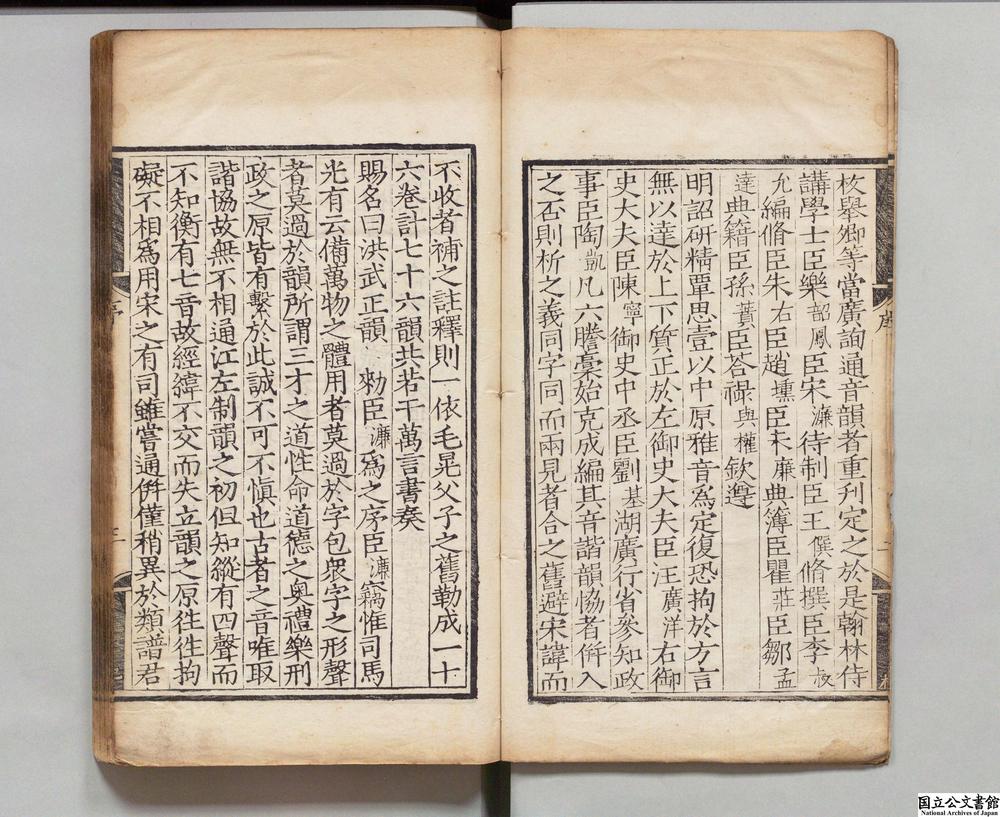 枚舉卿等當廣詢通音韻者重刋定之於是翰林侍
講學士臣樂韶鳳臣宋濂待制臣王僎脩撰臣李叔
允編脩臣朱右臣趙壎臣朱廉典簿臣瞿莊臣鄒孟
達典籍臣孫蕡臣荅祿與權欽遵
明詔研精覃思壹以中原雅音爲定復恐拘於方言
無以達於上下質正於左御史大夫臣汪廣洋右御
史大夫臣陳寧御史中丞臣劉基湖廣行省參知政
事臣陶凱凡六謄藁始克成編其音諧韻恊者併入
之否則析之義同字同而兩見者合之舊避宋諱而
不收者補之註釋則一依毛晃父子之舊勒成一十
六卷計七十六韻共若干萬言書奏
賜名曰洪武正韻 勑臣濂爲之序臣濂竊惟司馬
光有云備萬物之體用者莫過於字包衆字之形聲
者莫過於韻所謂三才之道性命道德之奥禮樂刑
政之原皆有繫於此誠不可不愼也古者之音唯取
諧協故無不相通江左制韻之初但知縱有四聲而
不知衡有七音故經緯不交而失立韻之原徃徃拘
礙不相爲用宋之有司雖嘗通併僅稍異於類譜君
序
国立公文書館
National Archives of Japan